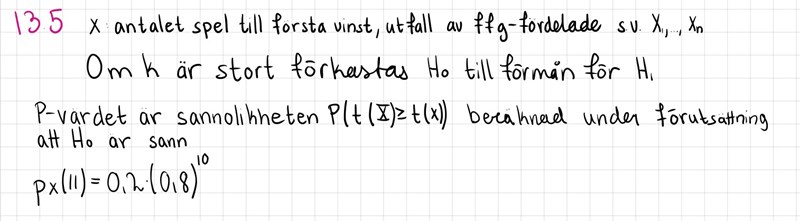 13.5 X antalet spel till första vinst, utfall av ffg-fördelade s.v. X₁,..., Xₙ
Om k är stort förkastas H₀ till förmån för H₁
P-värdet är sannolikheten P(t(X)≥t(x)) beräknad under förutsättning
att H₀ är sann
pₓ(11) = 0,2·(0,8)¹⁰